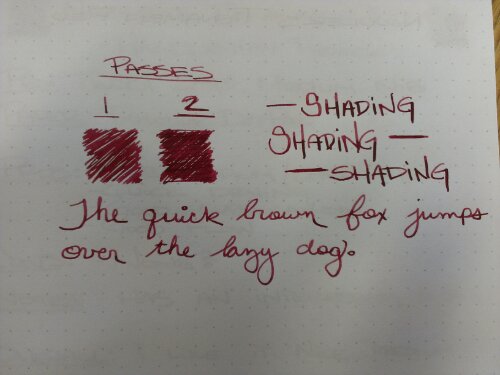 PASSES
1 2
— SHADING
SHADING —
— SHADING
The quick brown fox jumps
over the lazy dog.